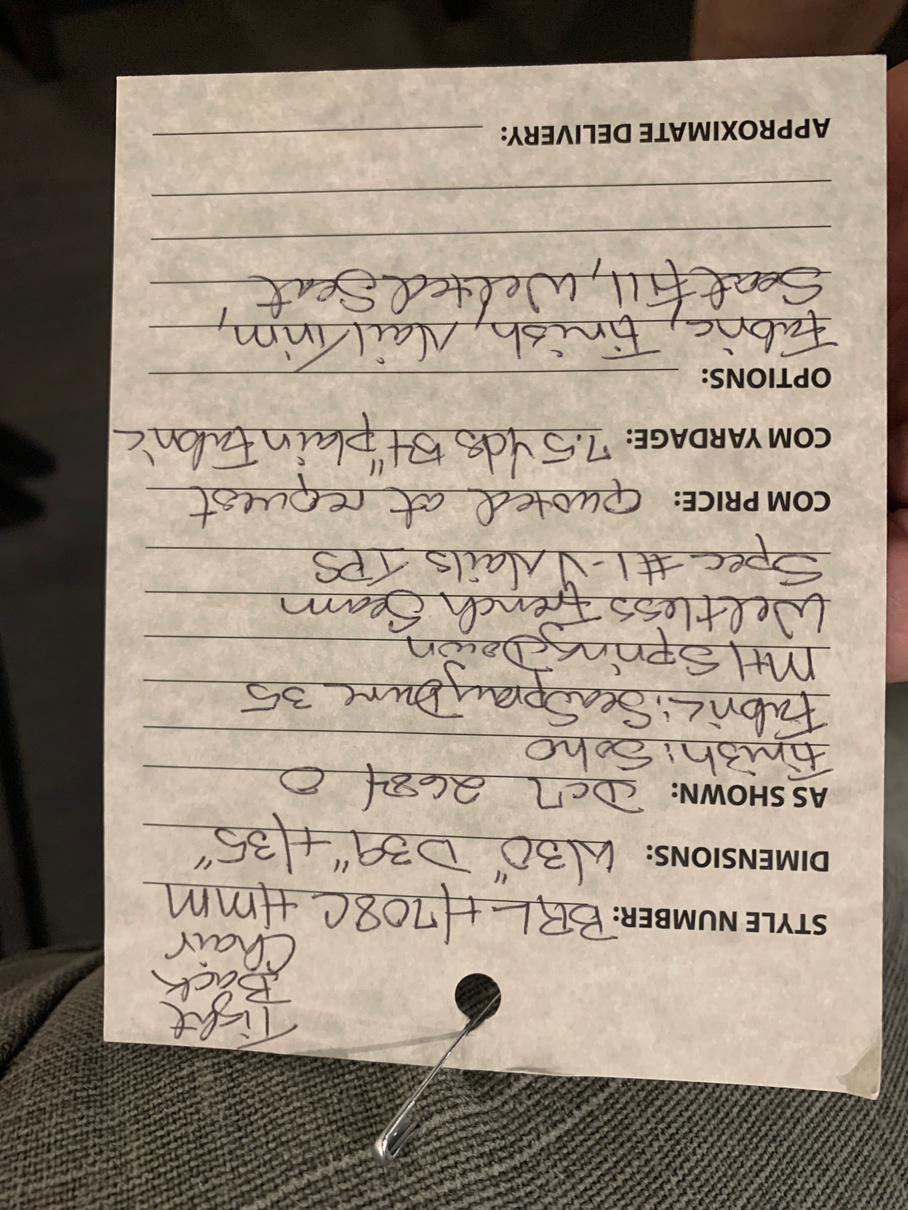 Tight
Back
Chair
STYLE NUMBER: BRL H708C HMM
DIMENSIONS: W30" D39" H35"
AS SHOWN: DCN 2684 O
Finish: Soho
Fabric: SeaSpray Dune 35
MH Spring Down
Weltless French Seam
Spec #1-V Nails TPS
COM PRICE: quoted at request
COM YARDAGE: 7.5 Yds 54" plain Fabric
OPTIONS:
Fabric, Finish, Nail Trim,
Seat Fill, Welted Seat
APPROXIMATE DELIVERY: